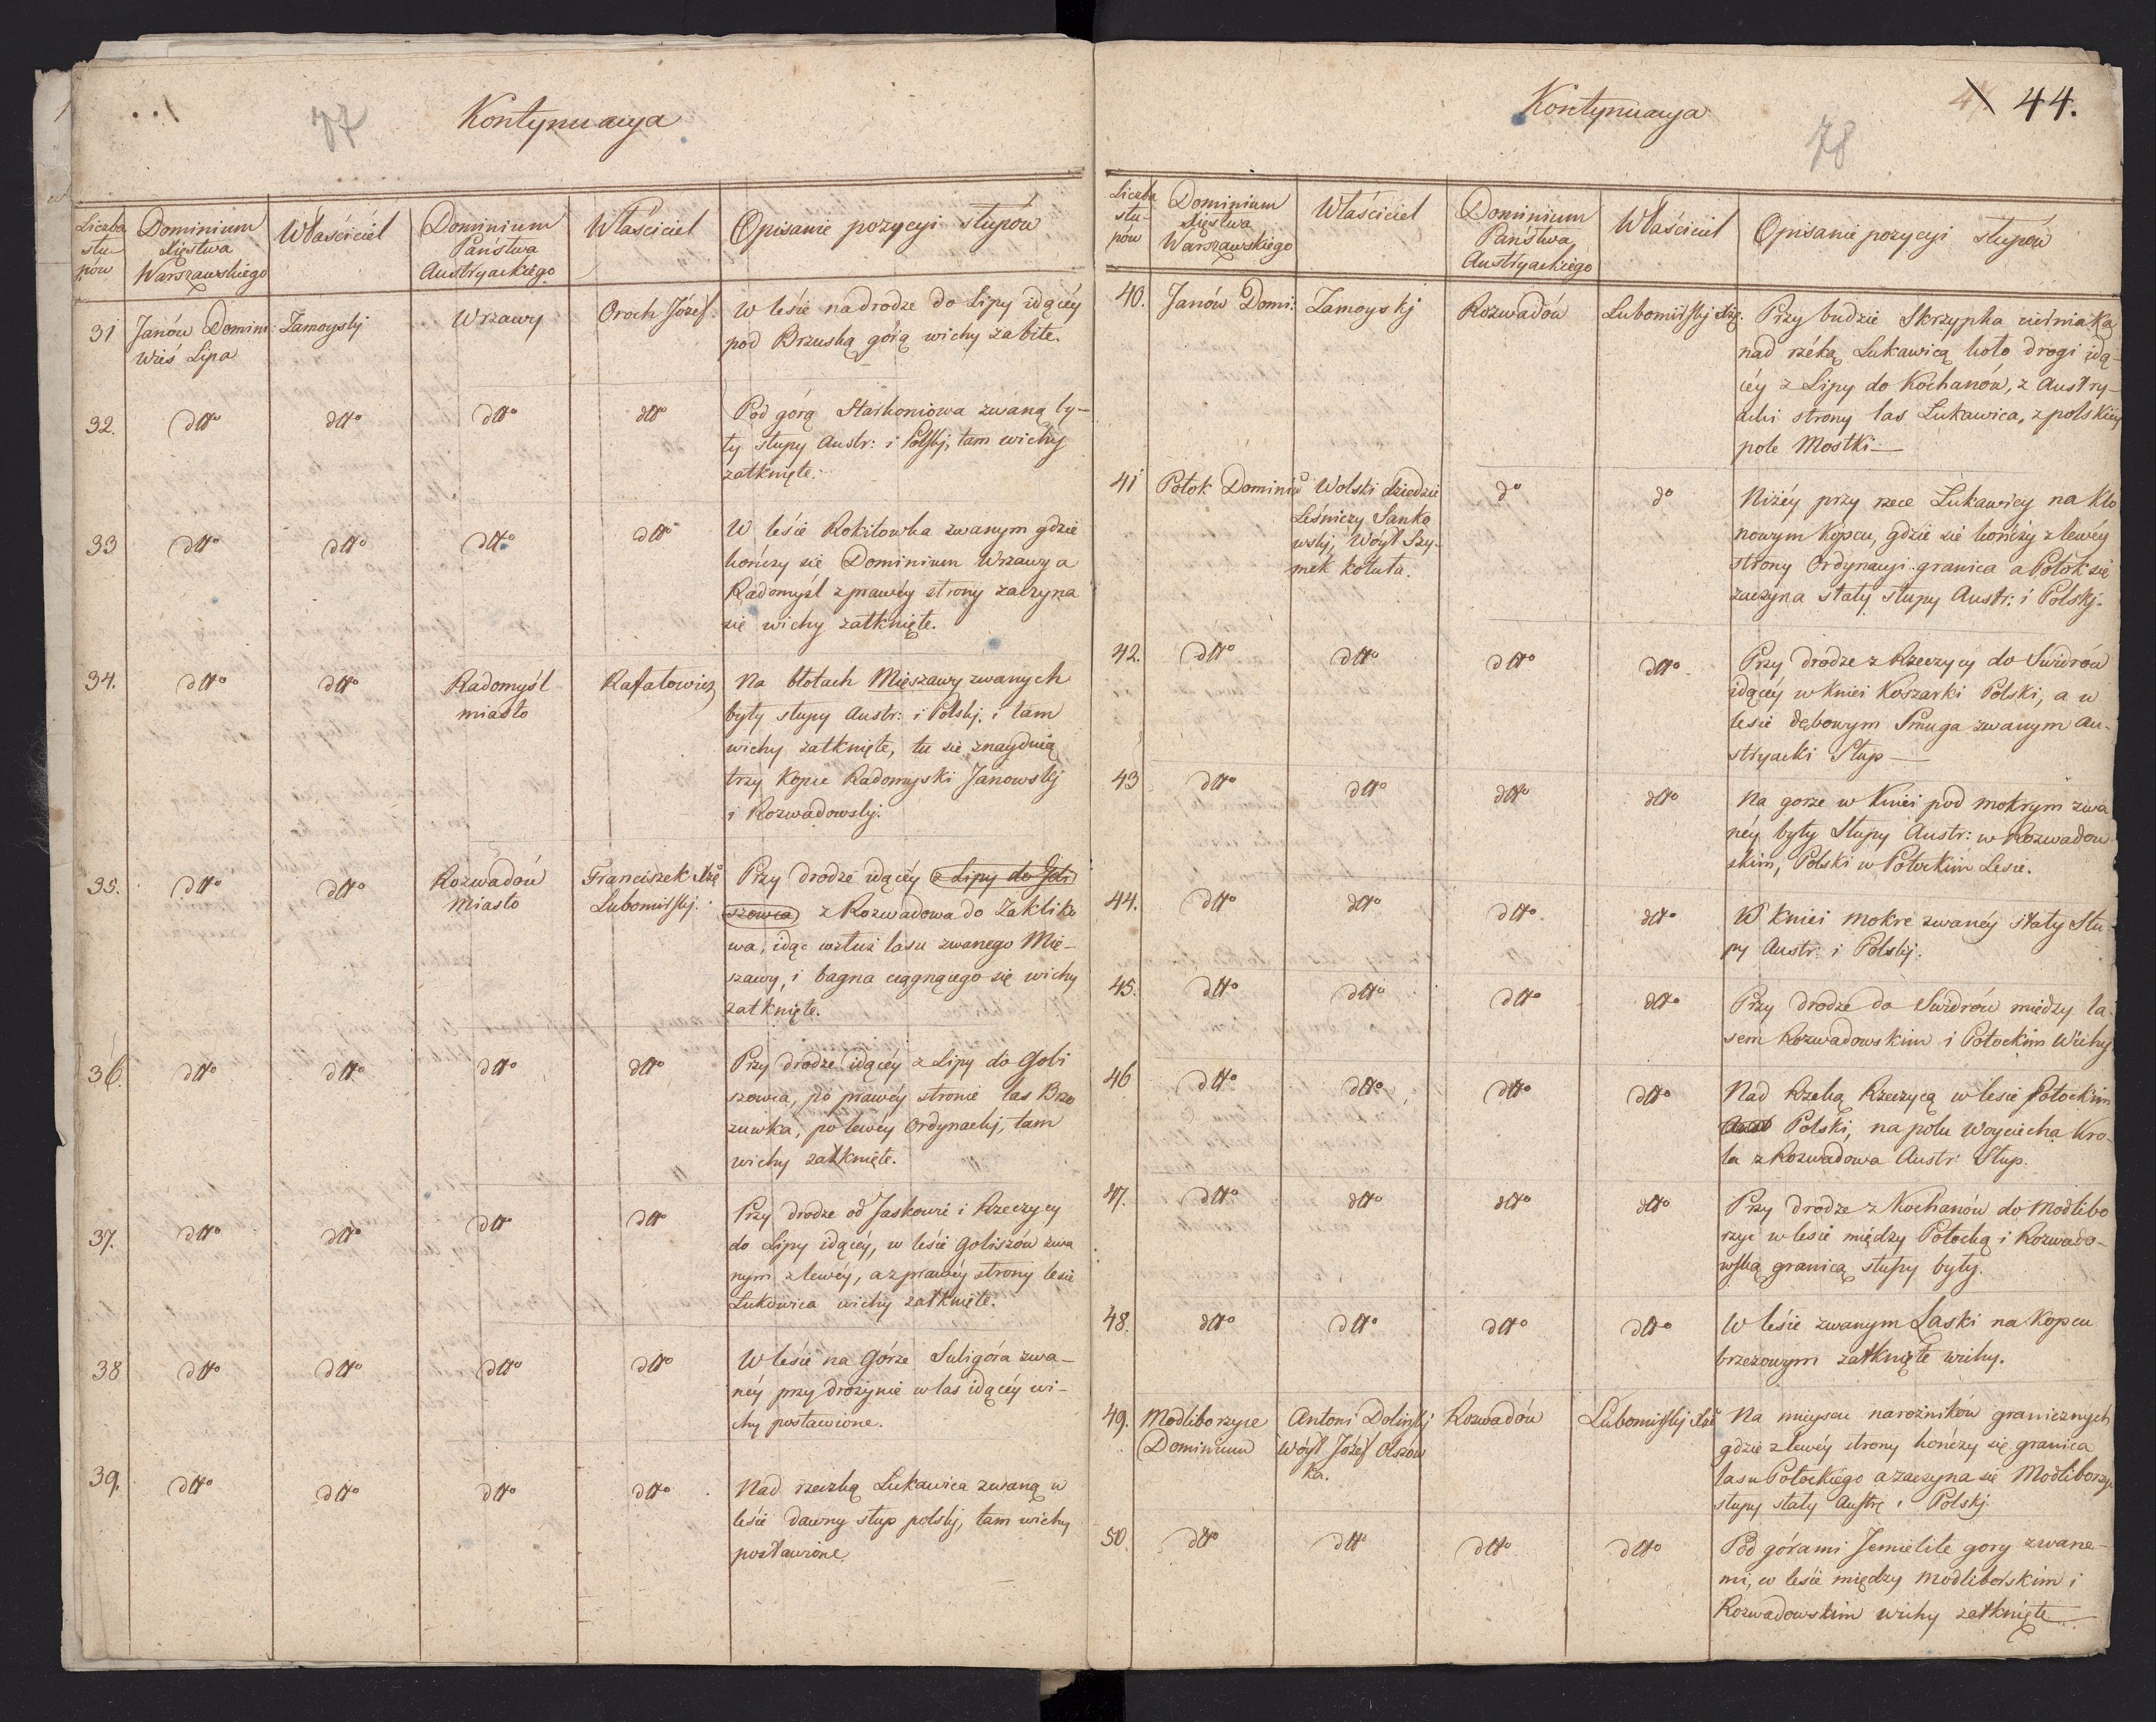 77
Kontynuacya
Liczba słu- pów
Dominium Xięstwa Warszawskiego
Właściciel
Dominium Państwa Austryackiego
Właściciel
Opisanie pozycyi słupów
31 Janów Domini: Zamoyskj Wrzawy Oroch Józef. W lesie na drodze do Lipy idącéy
Wieś Lipa pod Brzuską górą wichy zabite.
32. dtto dtto dtto dtto Pod górą Starkoniowa zwaną by-
ły słupy Austr: i Polskj, tam wichy
zatknięte.
33 dtto dtto dtto dtto W lesie Rokitowka zwanym gdzie
kończy się Dominium Wrzawy a
Radomyśl z prawéy strony zaczyna
się wichy zatknięte.
34. dtto dtto Radomyśl Rafałowicz Na błotach Mięszawy zwanych
miasto były słupy Austr: i Polskj. i tam
wichy zatknięte, tu się znaydują
trzy kopce Radomyski Janowskj
i Rozwadowskj.
35. dtto dtto Rozwadów Franciszek Xżę Przy drodze idącéy z Lipy do Gobi
Miasto Lubomirskj. szowca z Rozwadowa do Zakliko
wa, idąc wzłuż lasu zwanego Mię-
szawy, i bagna ciągnącego się wichy
zatknięte.
36. dtto dtto dtto dtto Przy drodze idącéy z Lipy do Gobi
szowca, po prawéy stronie las Brzo
zuwka, po lewéy Ordynackj, tam
wichy zatknięte.
37. dtto dtto dtto dtto Przy drodze od Jaskowic i Rzeczycy
do Lipy idącéy, w lesie Goliszów zwa
nym z lewéy, a z prawéy strony lesie
Lukowica wichy zatknięte.
38 dtto dtto dtto dtto W lesie na Górze Suligóra zwa-
néy przy drożynie w las idącéy wi-
chy postawione.
39. dtto dtto dtto dtto Nad rzeczką Lukawica zwaną w
lesie dawny słup polskj, tam wichy
postawione
Kontynuacya
44.
78
Liczba słu- pów
Dominium Xięstwa Warszawskiego
Właściciel
Dominium Państwa Austryackiego
Właściciel
Opisanie pozycyi słupów
40. Janów Domi: Zamoyskj Rozwadów Lubomirskj Xżę. Przy budzie Skrzypka cieśniaka
nad rzéką Lukawicą koło drogi idą-
céy z Lipy do Kochanów, z Austry-
acki strony las Lukawica, z polskiéy
pole Mostki
41 Potok Dominiu Wolski dziedzic do do Niżéy przy rzece Lukawicy na klo
Leśniczy Janko nowym kopcu, gdzie się kończy z lewéy
wskj, Wóyt Szy- strony Ordynacyi granica a Potok się
mek Kotuła. zaczyna stały słupy Austr: i Polskj.
42. dtto dtto dtto dtto Przy drodze z Rzeczycy do Swidrów
idącéy w Kniei Koszarki Polski, a w
lesie dębowym Smuga zwanym Au-
stryacki Słup
43 dtto dtto dtto dtto Na gorze w Kniei pod mokrym zwa
néy były Słupy Austr: w Rozwadow
skim, Polski w Potockim Lesie.
44. dtto dtto dtto dtto W kniei mokre zwanéy stały Słu
py Austr: i Polskj.
45. dtto dtto dtto dtto Przy drodze do Swidrów między la-
sem Rozwadowskim i Potockim Wichy
46 dtto dtto dtto dtto Nad Rzeką Rzeczycą w lesie Potockim
Polski, na polu Woyciecha Kro-
la z Rozwadowa Austr: Słup.
47. dtto dtto dtto dtto Przy drodze z Kochanów do Modlibo
rzyc w lesie między Potocką i Rozwado-
wską granicą słupy były.
48. dtto dtto dtto dtto W lesie zwanym Laski na Kopcu
brzezowym zatknięte wichy.
49. Modliborzyce Antoni Dolińskj Rozwadów Lubomirskj Xżę Na mieyscu narożników granicznych
Dominium Wóyt Józef Olszów gdzie z lewéy strony kończy się granica
ka. lasu Potockiego a zaczyna się Modliborzyc
słupy stały Austr: i Polskj.
50. dtto dtto dtto dtto Pod górami Jemielite gory zwane-
mi, w lesie między Modliborskim i
Rozwadowskim wichy zatknięte